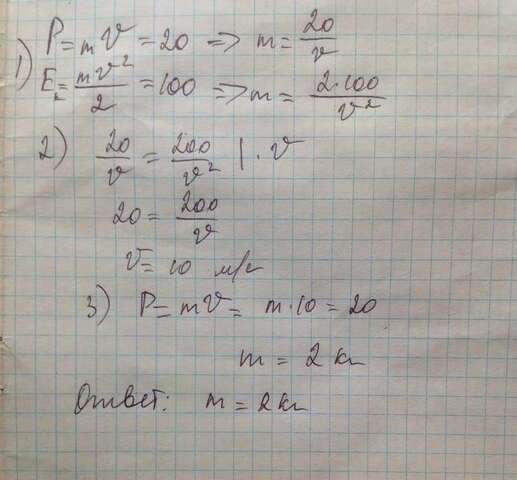 1) P = mV = 20 => m = 20/v
Eк = mv²/2 = 100 => m = 2·100/v²
2) 20/v = 200/v² | · v
20 = 200/v
v = 10 м/с
3) P = mV = m·10 = 20
m = 2 кг
Ответ: m = 2 кг